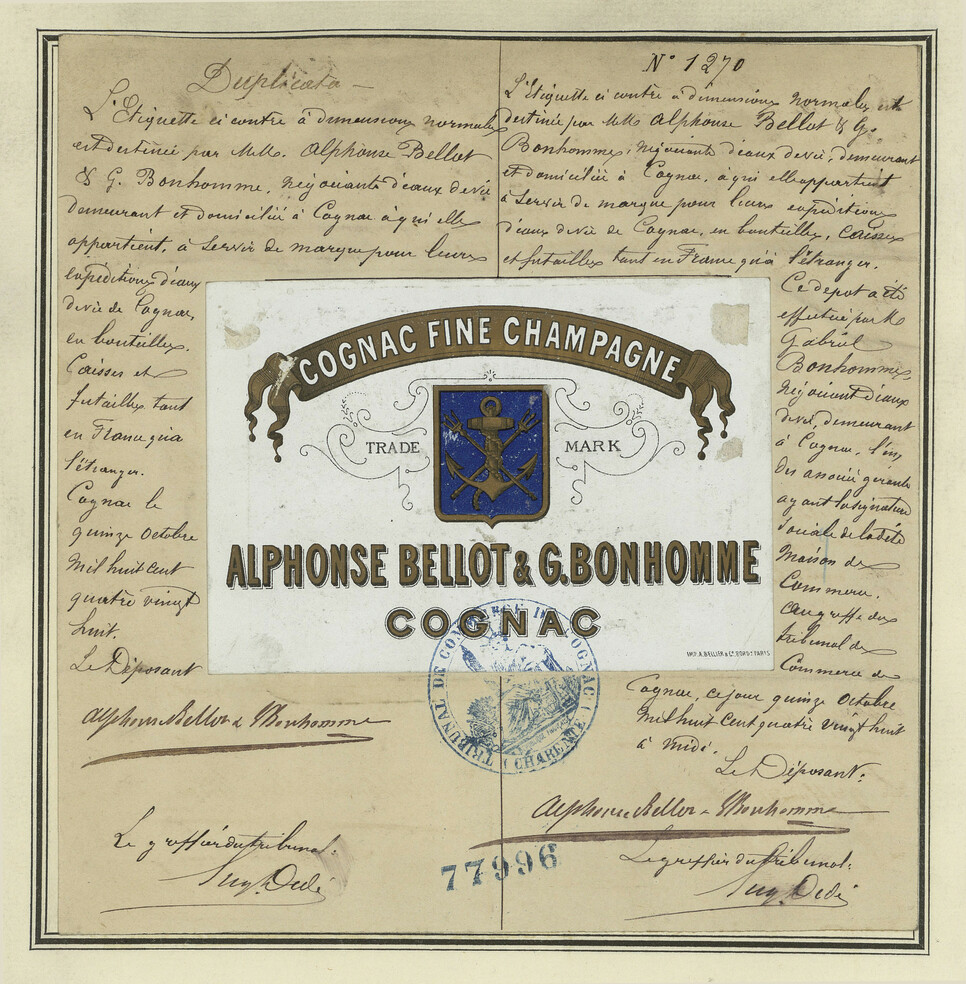 Duplicata
L'Etiquette ci contre à dimensions normales
est destinée par M.M. Alphonse Bellot
& G. Bonhomme, négociants d'eaux de vie
demeurant et domiciliés à Cognac à qui elle
appartient, à servir de marque pour leurs
expéditions d'eaux
de vie de Cognac,
en bouteilles,
Caisses et
futailles tant
en France qu'à
l'étranger.
Cognac le
quinze Octobre
Mil huit cent
quatre vingt
huit.
Le Déposant
Alphonse Bellot & G. Bonhomme
Le greffier du tribunal:
N° 1270
L'Etiquette ci contre à dimensions normales est
destinée par M.M. Alphonse Bellot & G.
Bonhomme, négociants d'eaux de vie, demeurant
et domiciliés à Cognac, à qui elle appartient
à servir de marque pour leurs expéditions
d'eaux de vie de Cognac, en bouteilles, caisses
et futailles tant en France qu'à l'étranger.
Ce dépot a été
effectué par M.
Gabriel
Bonhomme,
négociant d'eaux
de vie, demeurant
à Cognac, l'un
des associés gérants
ayant la signature
sociale de la dite
Maison de
Commerce.
au greffe du
tribunal de
Commerce de
Cognac, ce jour quinze Octobre
Mil huit cent quatre vingt huit
à midi.
Le Déposant:
Alphonse Bellot & G. Bonhomme
Le greffier du tribunal:
COGNAC FINE CHAMPAGNE
TRADE MARK
ALPHONSE BELLOT & G. BONHOMME
COGNAC
IMP. A. BELLIER & Cie. BORDX PARIS
TRIBUNAL DE COMMERCE DE COGNAC
(CHARENTE)
77996